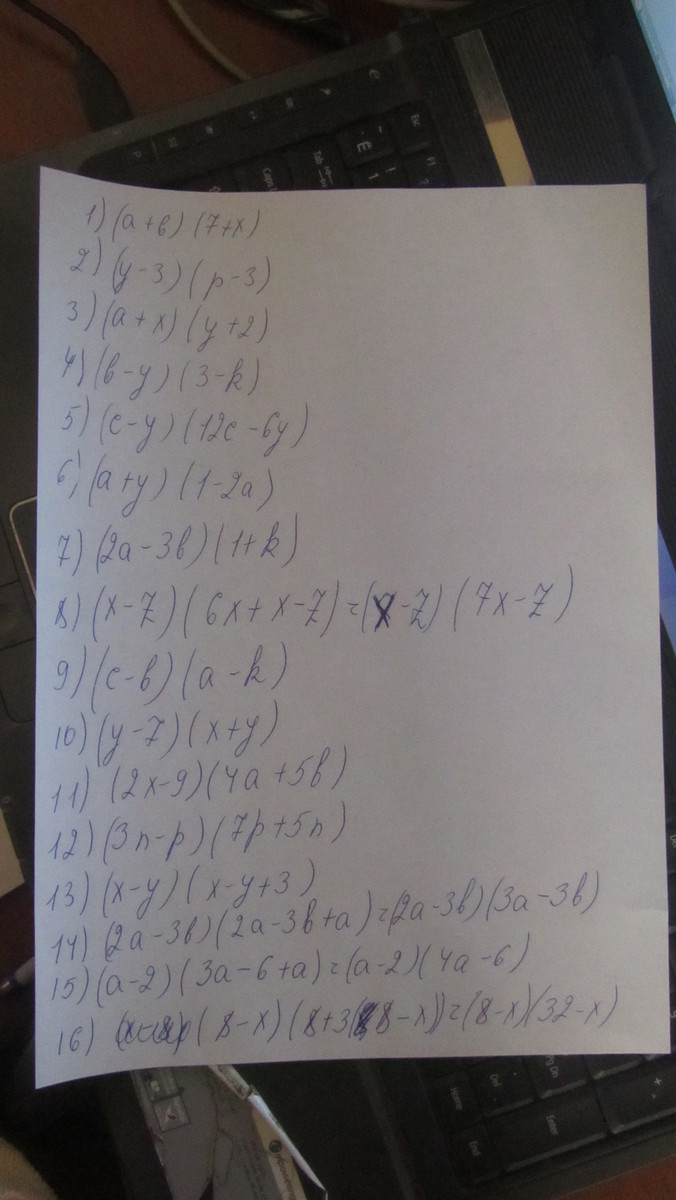 Esc
F1
Tab
Caps
1) (a+b) (7+x)
2) (y-3) (p-3)
3) (a+x) (y+2)
4) (b-y) (3-k)
5) (c-y) (12c-6y)
6) (a+y) (1-2a)
7) (2a-3b) (1+k)
8) (x-7) (6x+x-7)=(x-7) (7x-7)
9) (c-b) (a-k)
10) (y-7) (x+y)
11) (2x-9) (4a+5b)
12) (3n-p) (7p+5n)
13) (x-y) (x-y+3)
14) (2a-3b) (2a-3b+a)=(2a-3b) (3a-3b)
15) (a-2) (3a-6+a)=(a-2) (4a-6)
16) (8-x) (8+3(8-x))=(8-x) (32-x)
Home
Del
End
Enter
Pg Dn